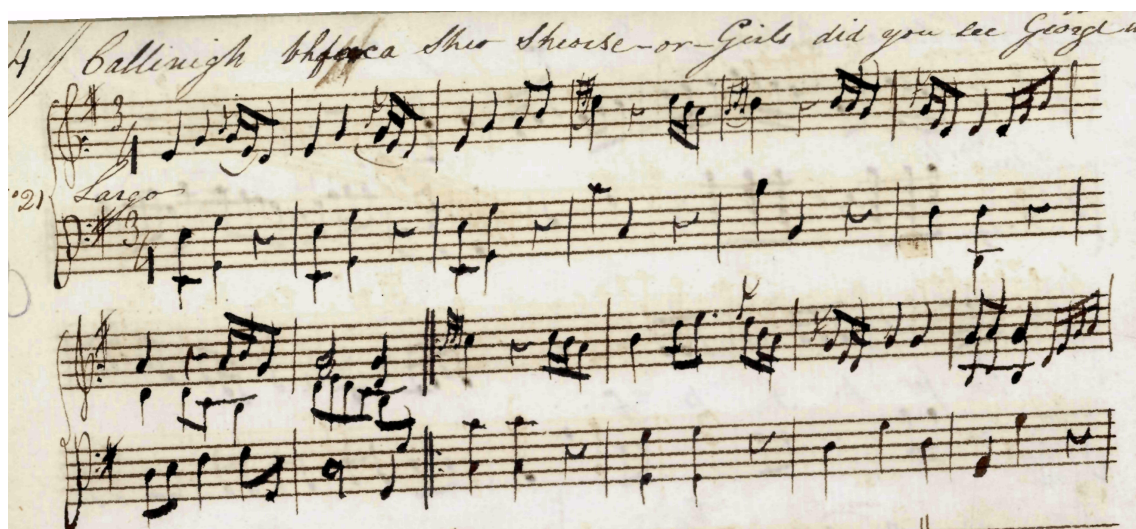 4 Callinigh bhfaca Sheo Sheorse - or - Girls did you see George
3
4
21) Largo
3
4